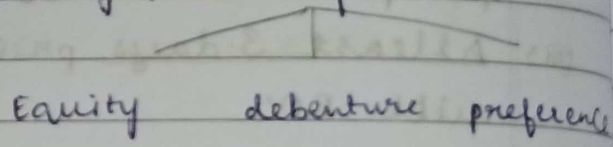 Equity debenture preference